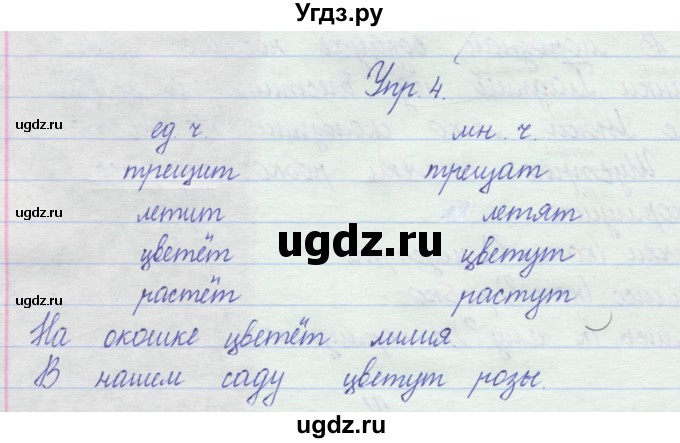 Угдз.ру
Упр. 4.
ugdz.ru ugdz.ru
ед. ч. мн. ч.
трещит трещат
летит летят
ugdz.ru
цветёт цветут
растёт растут
ugdz.ru ugdz.ru
На окошке цветёт лилия.
В нашем саду цветут розы.
ugdz.ru ugdz.ru
ugdz.ru